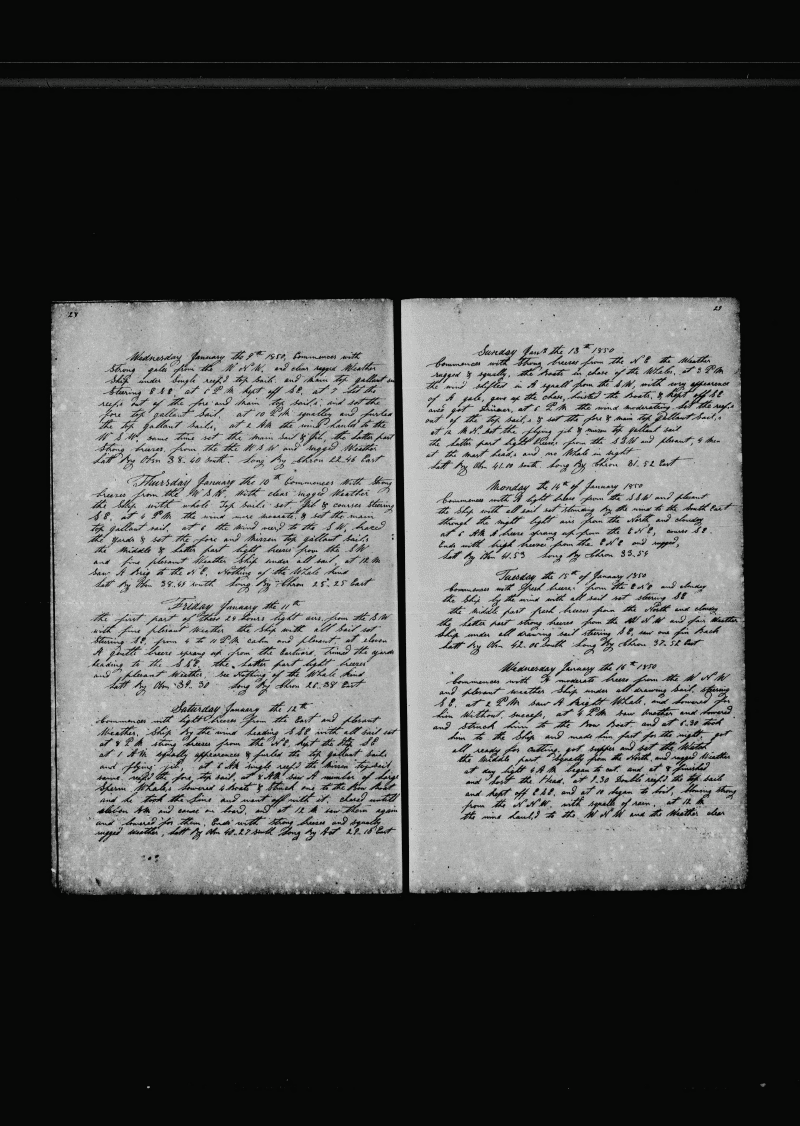 24
Wednesday January the 9th 1850, Commences with
Strong gales from the W N W, and clear ruged Weather
Ship under Single reef'd top sails and main top gallant
Steering E S E at 5 P M kept off SE, at 7 let the
reefs out of the fore and main top sails, and set the
fore top gallant sail. at 10 P M squally and furled
the top gallant sails, at 2 AM the wind hauled to the
W S W. same time set the main sail & Jib, the latter part
Strong breezes, from the the W S W and rugged Weather
Latt By Obn 38.40 South. Long By Chron 22.46 East
Thursday January the 10th Commences With Strong
breezes from the W S W, With clear rugged Weather
the Ship with whole Top Sails set Jib & courses Steering
S E, at 4 P M the wind more moderate, & set the main
top gallant sail, at 6 the wind to the S W, braced
the yards & set the fore and Mizzen top gallant sails,
the Middle & latter part light breezes from the SW
and fine pleasant Weather Ship under all sail, at 12 M
Saw A Brig to the N E, Nothing of the Whale kind
Latt By Obn 38.41 South Long By Chron 25.25 East
Friday January the 11th
the first part of these 24 hours light airs, from the S W
with fine pleasant Weather the Ship with all Sail set
Steering SE, from 4 to 11 P M calm and pleasant, at eleven
A gentle breeze sprang up from the Eastward, trimed the yards
heading to the S S E, the latter part light breezes
and pleasant Weather, see Nothing of the Whale kind
Latt By Obn 39.30 Long By Chron 28.38 East
Saturday January the 12th
Commences with light breezes from the East and pleasant
Weather, Ship By the wind heading S S E with all sail set
at 8 P M strong breezes from the N E, kept the Ship S E
at 1 A M squally appearances & furled the top gallant sails
and flying jib, at 2 AM single reef'd the Mizen topsail
same reef'd the fore top sail, at 8 AM saw A number of large
Sperm Whales, lowered 4 Boats & Struck one to the Bow Boat
and he took the Line and went off with it, chased untill
eleven AM and came on board, and at 12 M saw them again
and lowered for them, Ends with strong breezes and squally
rugged weather, Latt By Obn 40.27 South Long By Act 29.18 East
Sunday the 13th 1850
Commences with Strong breezes from the N E the Weather
rugged & squally, the boats in chase of the Whales, at 2 P M
the wind shifted in A squall from the S W, with every appearence
of A gale, gave up the chase, hoisted the boats, & kept off SE
and got Dinner, at 5 P M the wind moderating let the reefs
out of the top sails & set the fore & main top Gallant sails,
at 12 M N. set the flying jib & mizen top gallant sail
the latter part light Breezes from the S S W and pleasant, 4 men
at the mast heads, and no Whale in sight
Latt By Obn 41.10 South. Long By Chron 31.52 East
Monday the 14th of January 1850
Commences with A light breeze from the S S W and pleasant
the Ship with all sail set standing by the wind to the South East
through the night light airs from the North and cloudy
at 5 AM A breeze sprang up from the E N E, course SE
Ends with brisk breezes from the E N E and rugged,
Latt By Obn 41.53 Long By Chron 33.59
Tuesday the 15th of January 1850
Commences with fresh breezes from the E N E and cloudy
the Ship by the wind with all sail set steering SE
the middle part fresh breezes from the North and cloudy
the latter part strong breezes from the N W and fair Weather
Ship under all drawing sail steering SE, saw one fin Back
Latt By Obn 42.05 South Long By Chron 37.52 East
Wednesday January the 16th 1850
Commences with A moderate breeze from the W N W
and pleasant weather Ship under all drawing sail, steering
S E, at 2 P M saw A Right Whale, and lowered for
him Without success, at 4 P M saw Another and lowered
and Struck him to the Bow Boat and at 6.30 took
him to the Ship and made him fast for the night, got
all ready for cutting, got supper and set the Watch
the Middle part Squally from the North and rugged Weather
at day light 4 A M began to cut and at 8 finished
and hove the Head, at 9.30 Double reef'd the top sails
and kept off E S E, and at 10 began to boil, blowing strong
from the N N W, with squalls of rain, at 12 M
the wind hauld to the W N W and the Weather clear